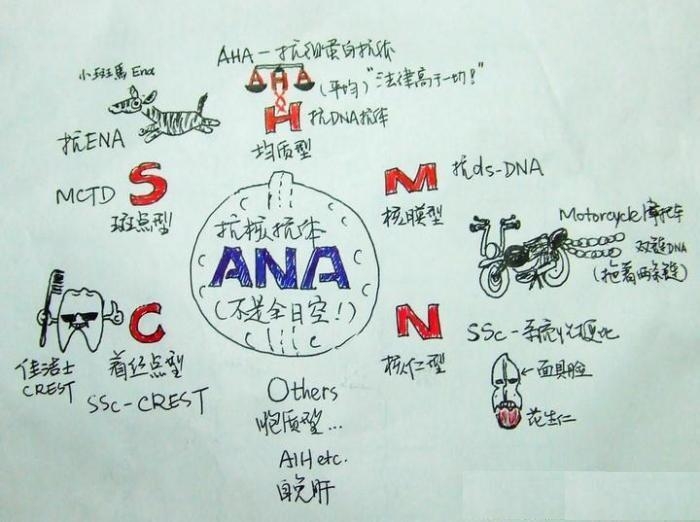 AHA-抗组蛋白抗体
AHA
(平均)"法律高于一切!"
H 抗DNA抗体
均质型
小斑馬 Ena
抗ENA
MCTD S
斑点型
M 抗ds-DNA
核膜型
Motorcycle 摩托车
双链DNA
(拖着两条链)
抗核抗体
ANA
(不是全日空!)
C
佳洁士
CREST
着丝点型
SSc-CREST
N
核仁型
SSc-系统性硬化
面具脸
花生仁
Others
胞质型...
AIH etc.
自免肝